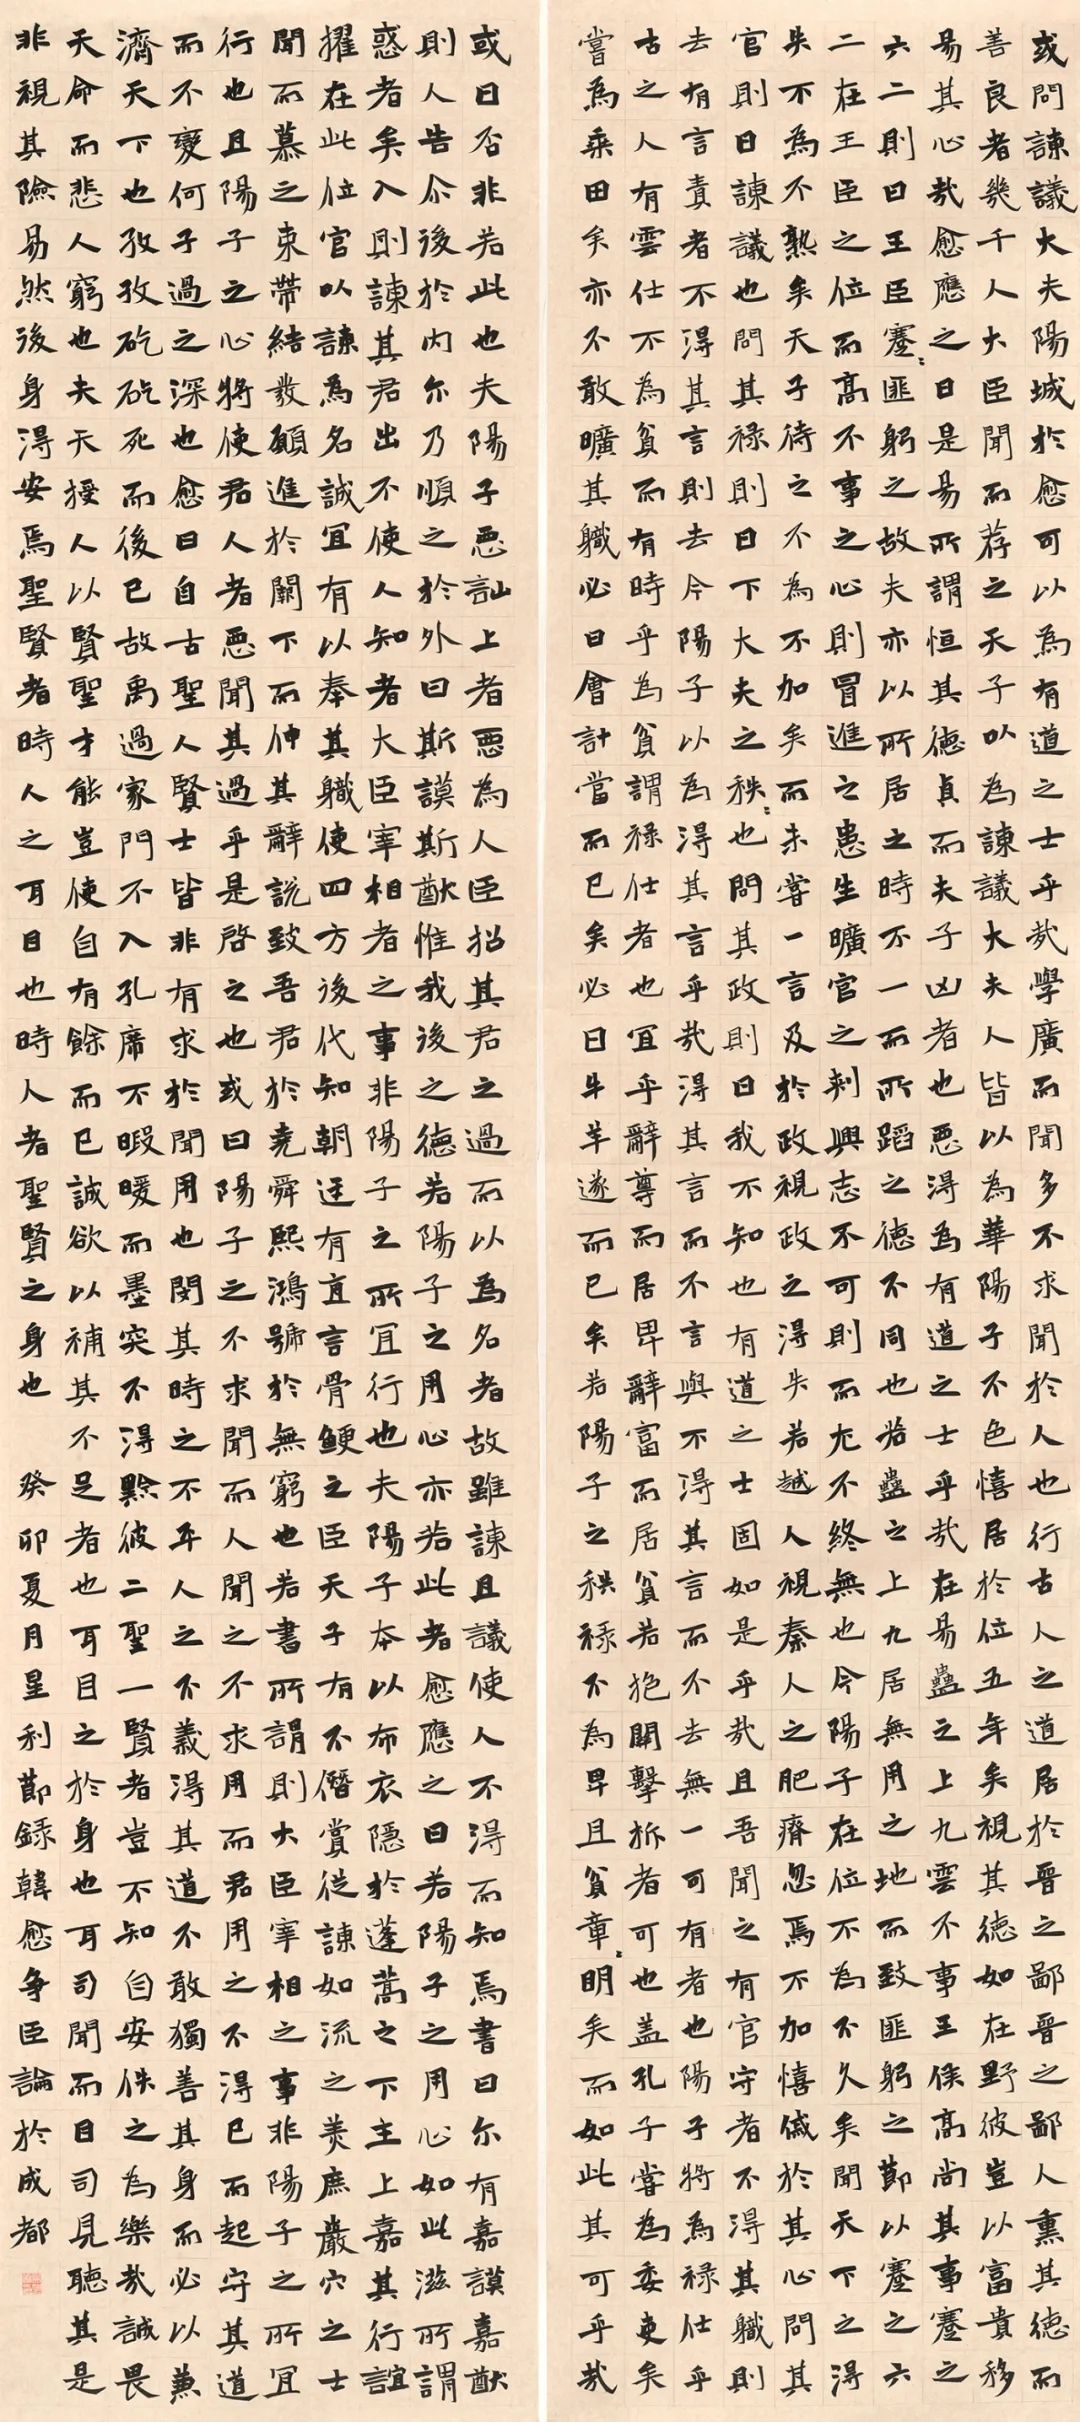 或問諫議大夫陽城於愈可以為有道之士乎哉學廣而聞多不求聞於人也行古人之道居於晉之鄙晉之鄙人熏其德而
善良者幾千人大臣聞而荐之天子以為諫議大夫人皆以為華陽子不色憘居於位五年矣視其德如在野彼豈以富貴移
易其心哉愈應之曰是易所謂恒其德貞而夫子凶者也惡得為有道之士乎哉在易蠱之上九雲不事王侯高尚其事蹇之
六二則曰王臣蹇〻匪躬之故夫亦以所居之時不一而所蹈之德不同也若蠱之上九居無用之地而致匪躬之節以蹇之六
二在王臣之位而高不事之心則冒進之患生曠官之刺興志不可則而尤不終無也今陽子在位不為不久矣聞天下之得
失不為不熟矣天子待之不為不加矣而未嘗一言及於政視政之得失若越人視秦人之肥瘠忽焉不加憘慼於其心問其
官則曰諫議也問其祿則曰下大夫之秩〻也問其政則曰我不知也有道之士固如是乎哉且吾聞之有官守者不得其職則
去有言責者不得其言則去今陽子以為得其言乎哉得其言而不言與不得其言而不去無一可有者也陽子將為祿仕乎
古之人有雲仕不為貧而有時乎為貧謂祿仕者也宜乎辭尊而居卑辭富而居貧若抱關擊柝者可也蓋孔子嘗為委吏矣
嘗為乘田矣亦不敢曠其職必曰會計當而已矣必曰牛羊遂而已矣若陽子之秩祿不為卑且貧章〻明矣而如此其可乎哉
或曰否非若此也夫陽子惡訕上者惡為人臣招其君之過而以為名者故雖諫且議使人不得而知焉書曰尔有嘉謨嘉猷
則人告尒後於內尔乃順之於外曰斯謨斯猷惟我後之德若陽子之用心亦若此者愈應之曰若陽子之用心如此滋所謂
惑者矣入則諫其君出不使人知者大臣宰相者之事非陽子之所宜行也夫陽子本以布衣隱於蓬蒿之下主上嘉其行誼
擢在此位官以諫為名誠宜有以奉其職使四方後代知朝廷有直言骨鯁之臣天子有不僭賞從諫如流之美庶巖穴之士
聞而慕之束帶結髮願進於闕下而伸其辭說致吾君於堯舜熙鴻號於無窮也若書所謂則大臣宰相之事非陽子之所宜
行也且陽子之心將使君人者惡聞其過乎是啓之也或曰陽子之不求聞而人聞之不求用而君用之不得已而起守其道
而不變何子過之深也愈曰自古聖人賢士皆非有求於聞用也閔其時之不平人之不義得其道不敢獨善其身而必以兼
濟天下也孜孜矻矻死而後已故禹過家門不入孔席不暇暖而墨突不得黔彼二聖一賢者豈不知自安佚之為樂哉誠畏
天命而悲人窮也夫天授人以賢聖才能豈使自有餘而已誠欲以補其不足者也耳目之於身也耳司聞而目司見聽其是
非視其險易然後身得安焉聖賢者時人之耳目也時人者聖賢之身也 癸卯夏月星利節錄韓愈爭臣論於成都